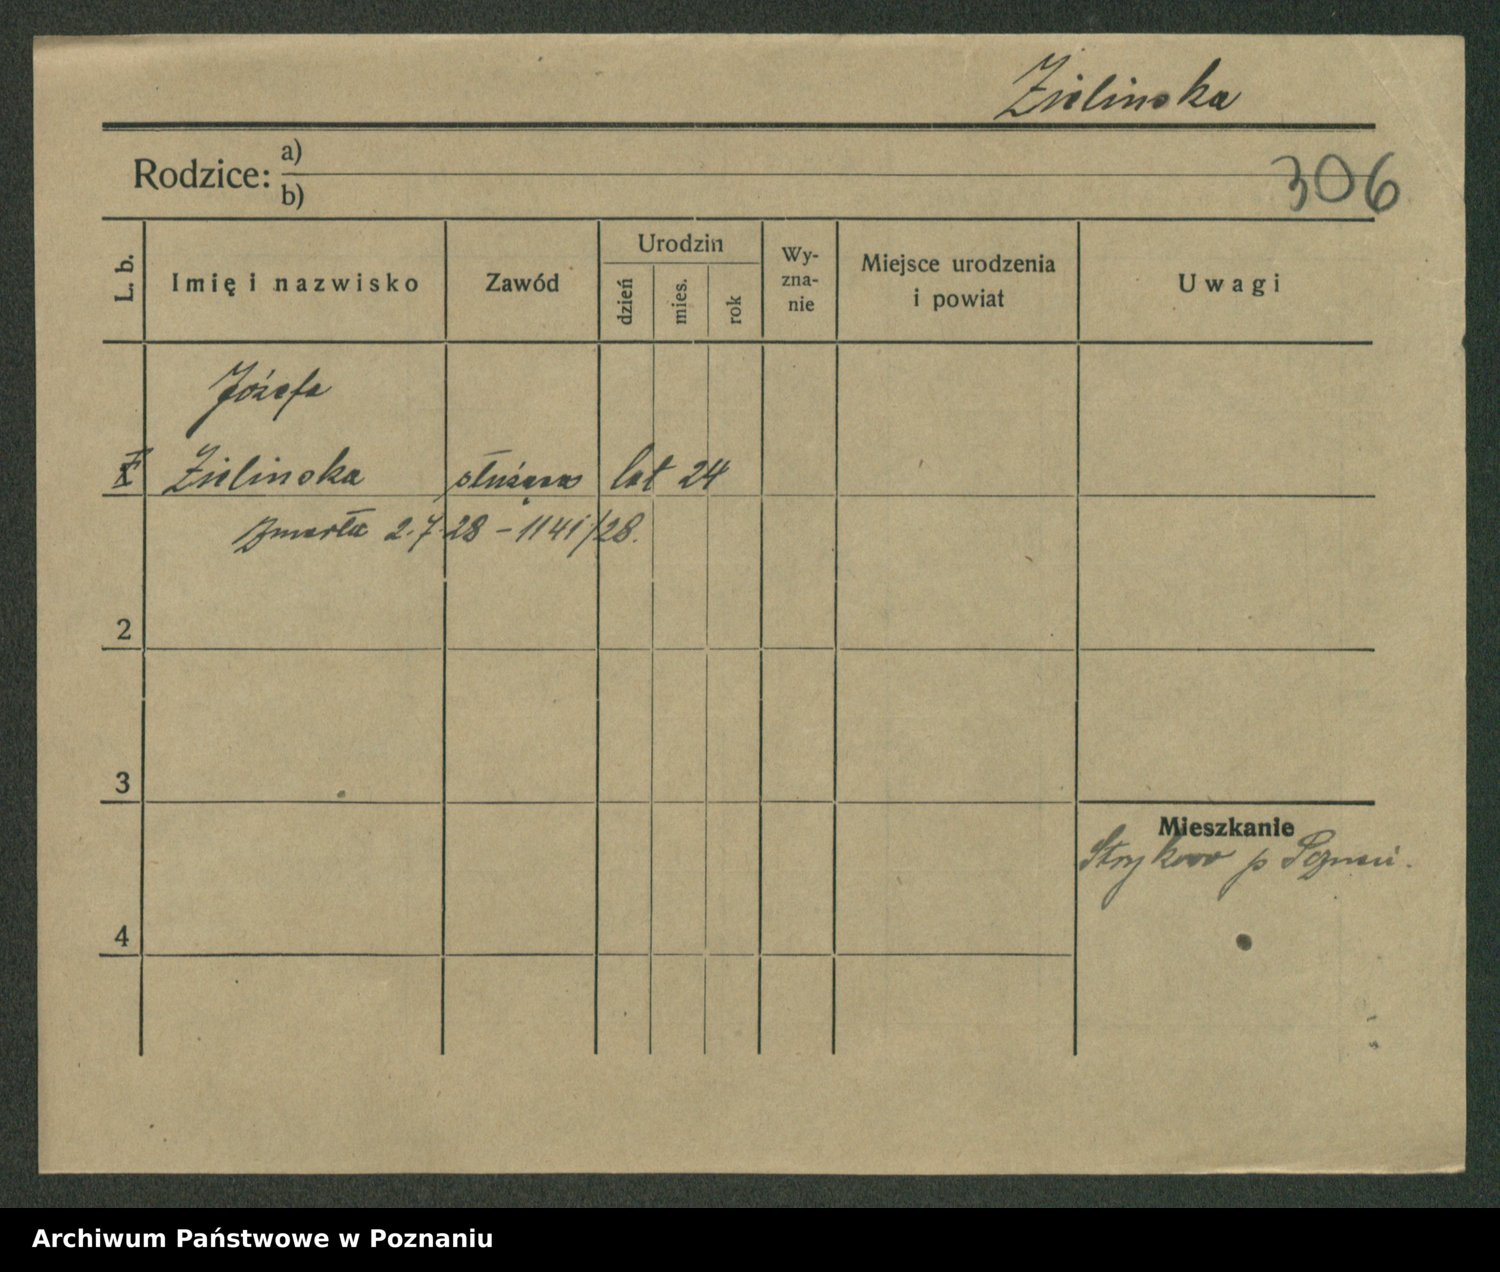 Zielinska
Rodzice: a)
b)
306
L. b.
Imię i nazwisko
Zawód
Urodzin
dzień
mies.
rok
Wy-
zna-
nie
Miejsce urodzenia
i powiat
Uwagi
Józefa
Zielinska służąca lat 24
Zmarła 2.7.28 – 1141/28.
2
3
4
Mieszkanie
Strykowo p Poznań.
Archiwum Państwowe w Poznaniu